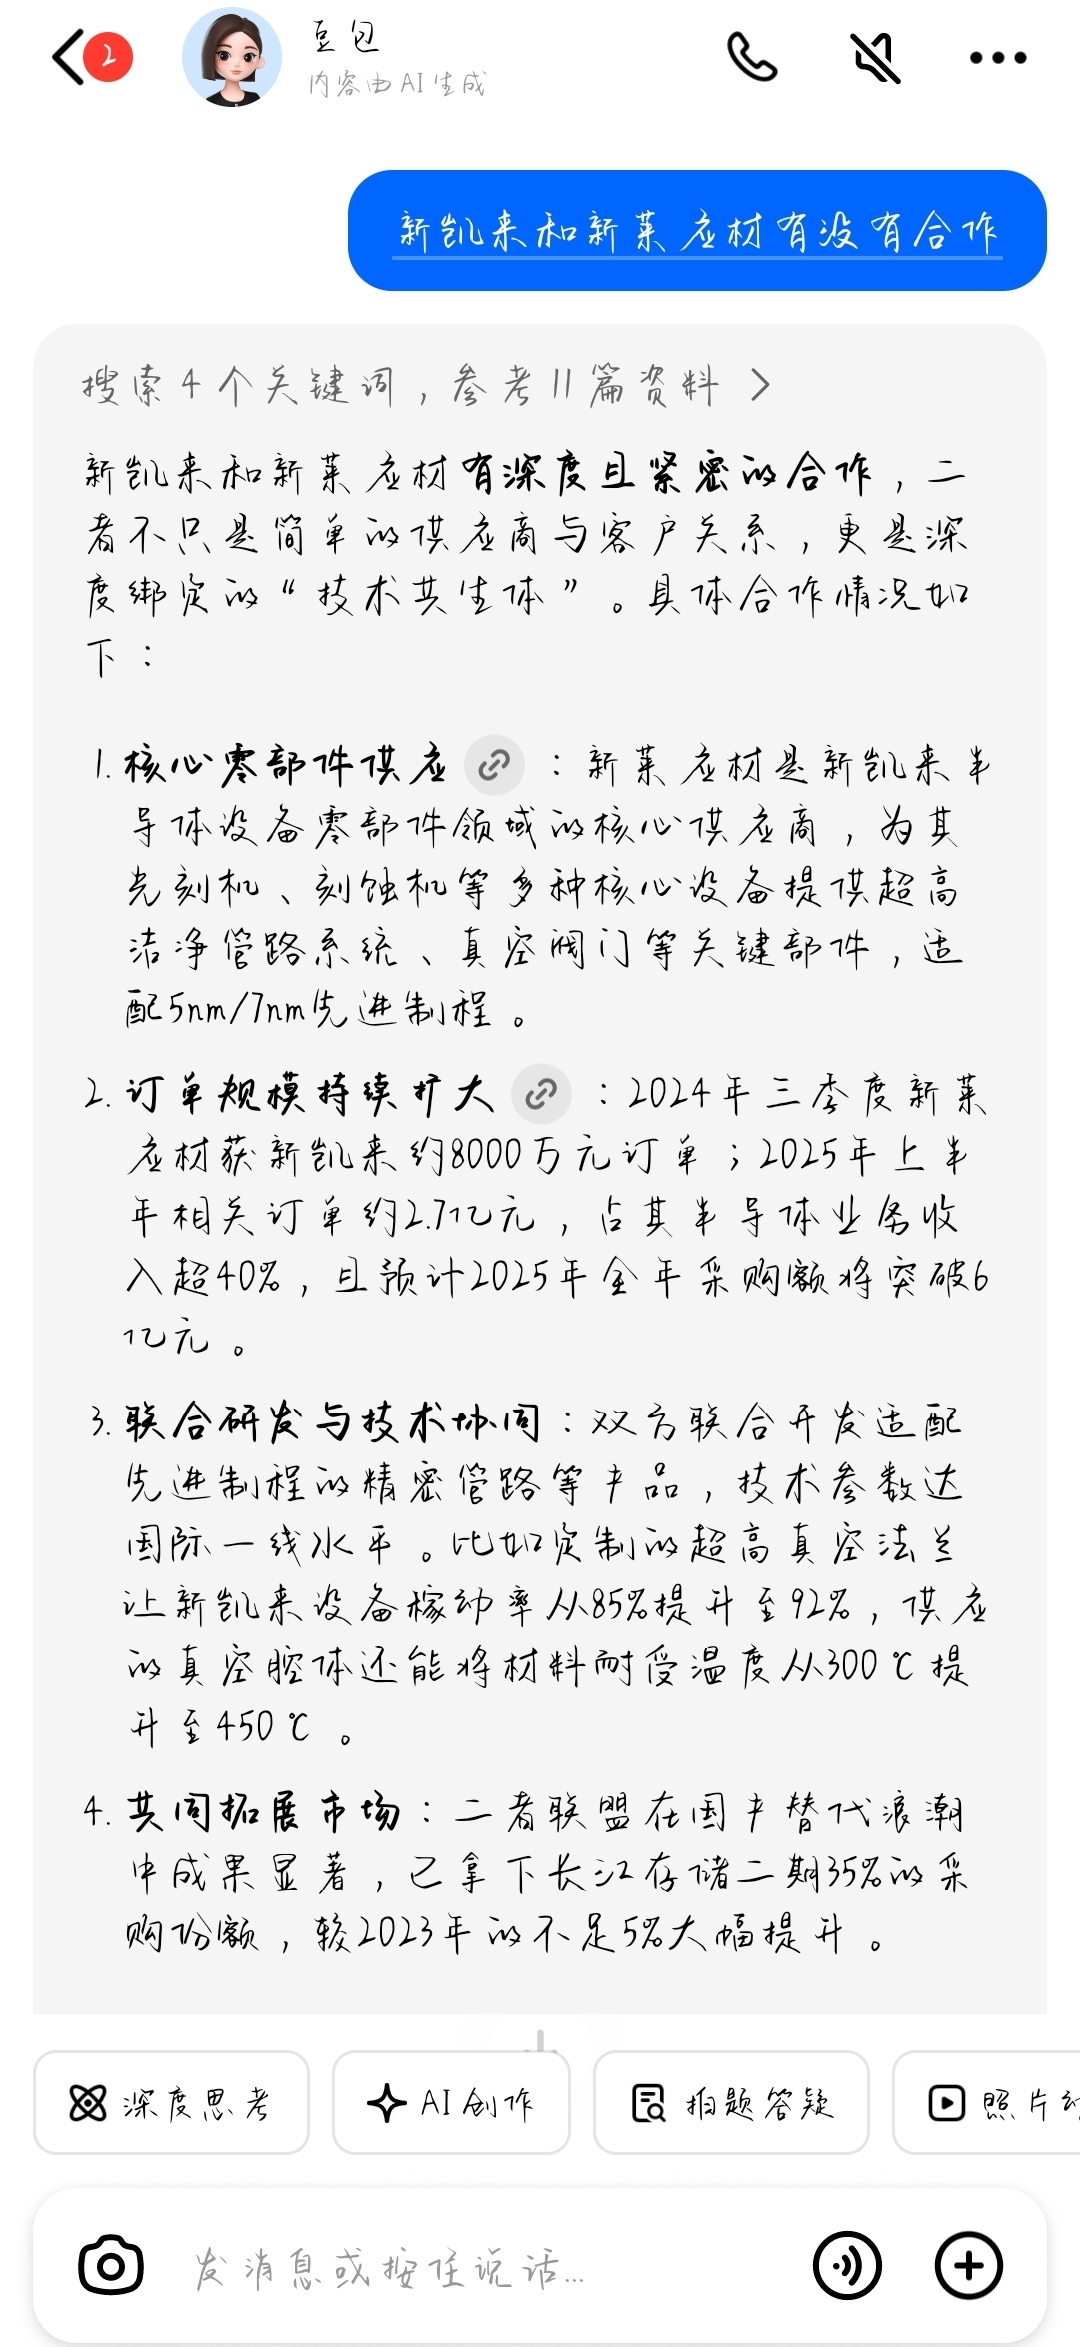 2
豆包
内容由 AI 生成
新凯来和新莱应材有没有合作
搜索 4 个关键词，参考 11 篇资料
新凯来和新莱应材有深度且紧密的合作，二
者不只是简单的供应商与客户关系，更是深
度绑定的“技术共生体”。具体合作情况如
下：
1. 核心零部件供应：新莱应材是新凯来半
导体设备零部件领域的核心供应商，为其
光刻机、刻蚀机等多种核心设备提供超高
洁净管路系统、真空阀门等关键部件，适
配5nm/7nm先进制程。
2. 订单规模持续扩大：2024年三季度新莱
应材获新凯来约8000万元订单；2025年上半
年相关订单约2.7亿元，占其半导体业务收
入超40%，且预计2025年全年采购额将突破6
亿元。
3. 联合研发与技术协同：双方联合开发适配
先进制程的精密管路等产品，技术参数达
国际一线水平。比如定制的超高真空法兰
让新凯来设备稼动率从85%提升至92%，供应
的真空腔体还能将材料耐受温度从300℃提
升至450℃。
4. 共同拓展市场：二者联盟在国产替代浪潮
中成果显著，已拿下长江存储二期35%的采
购份额，较2023年的不足5%大幅提升。
深度思考
AI 创作
拍题答疑
照片
发消息或按住说话...